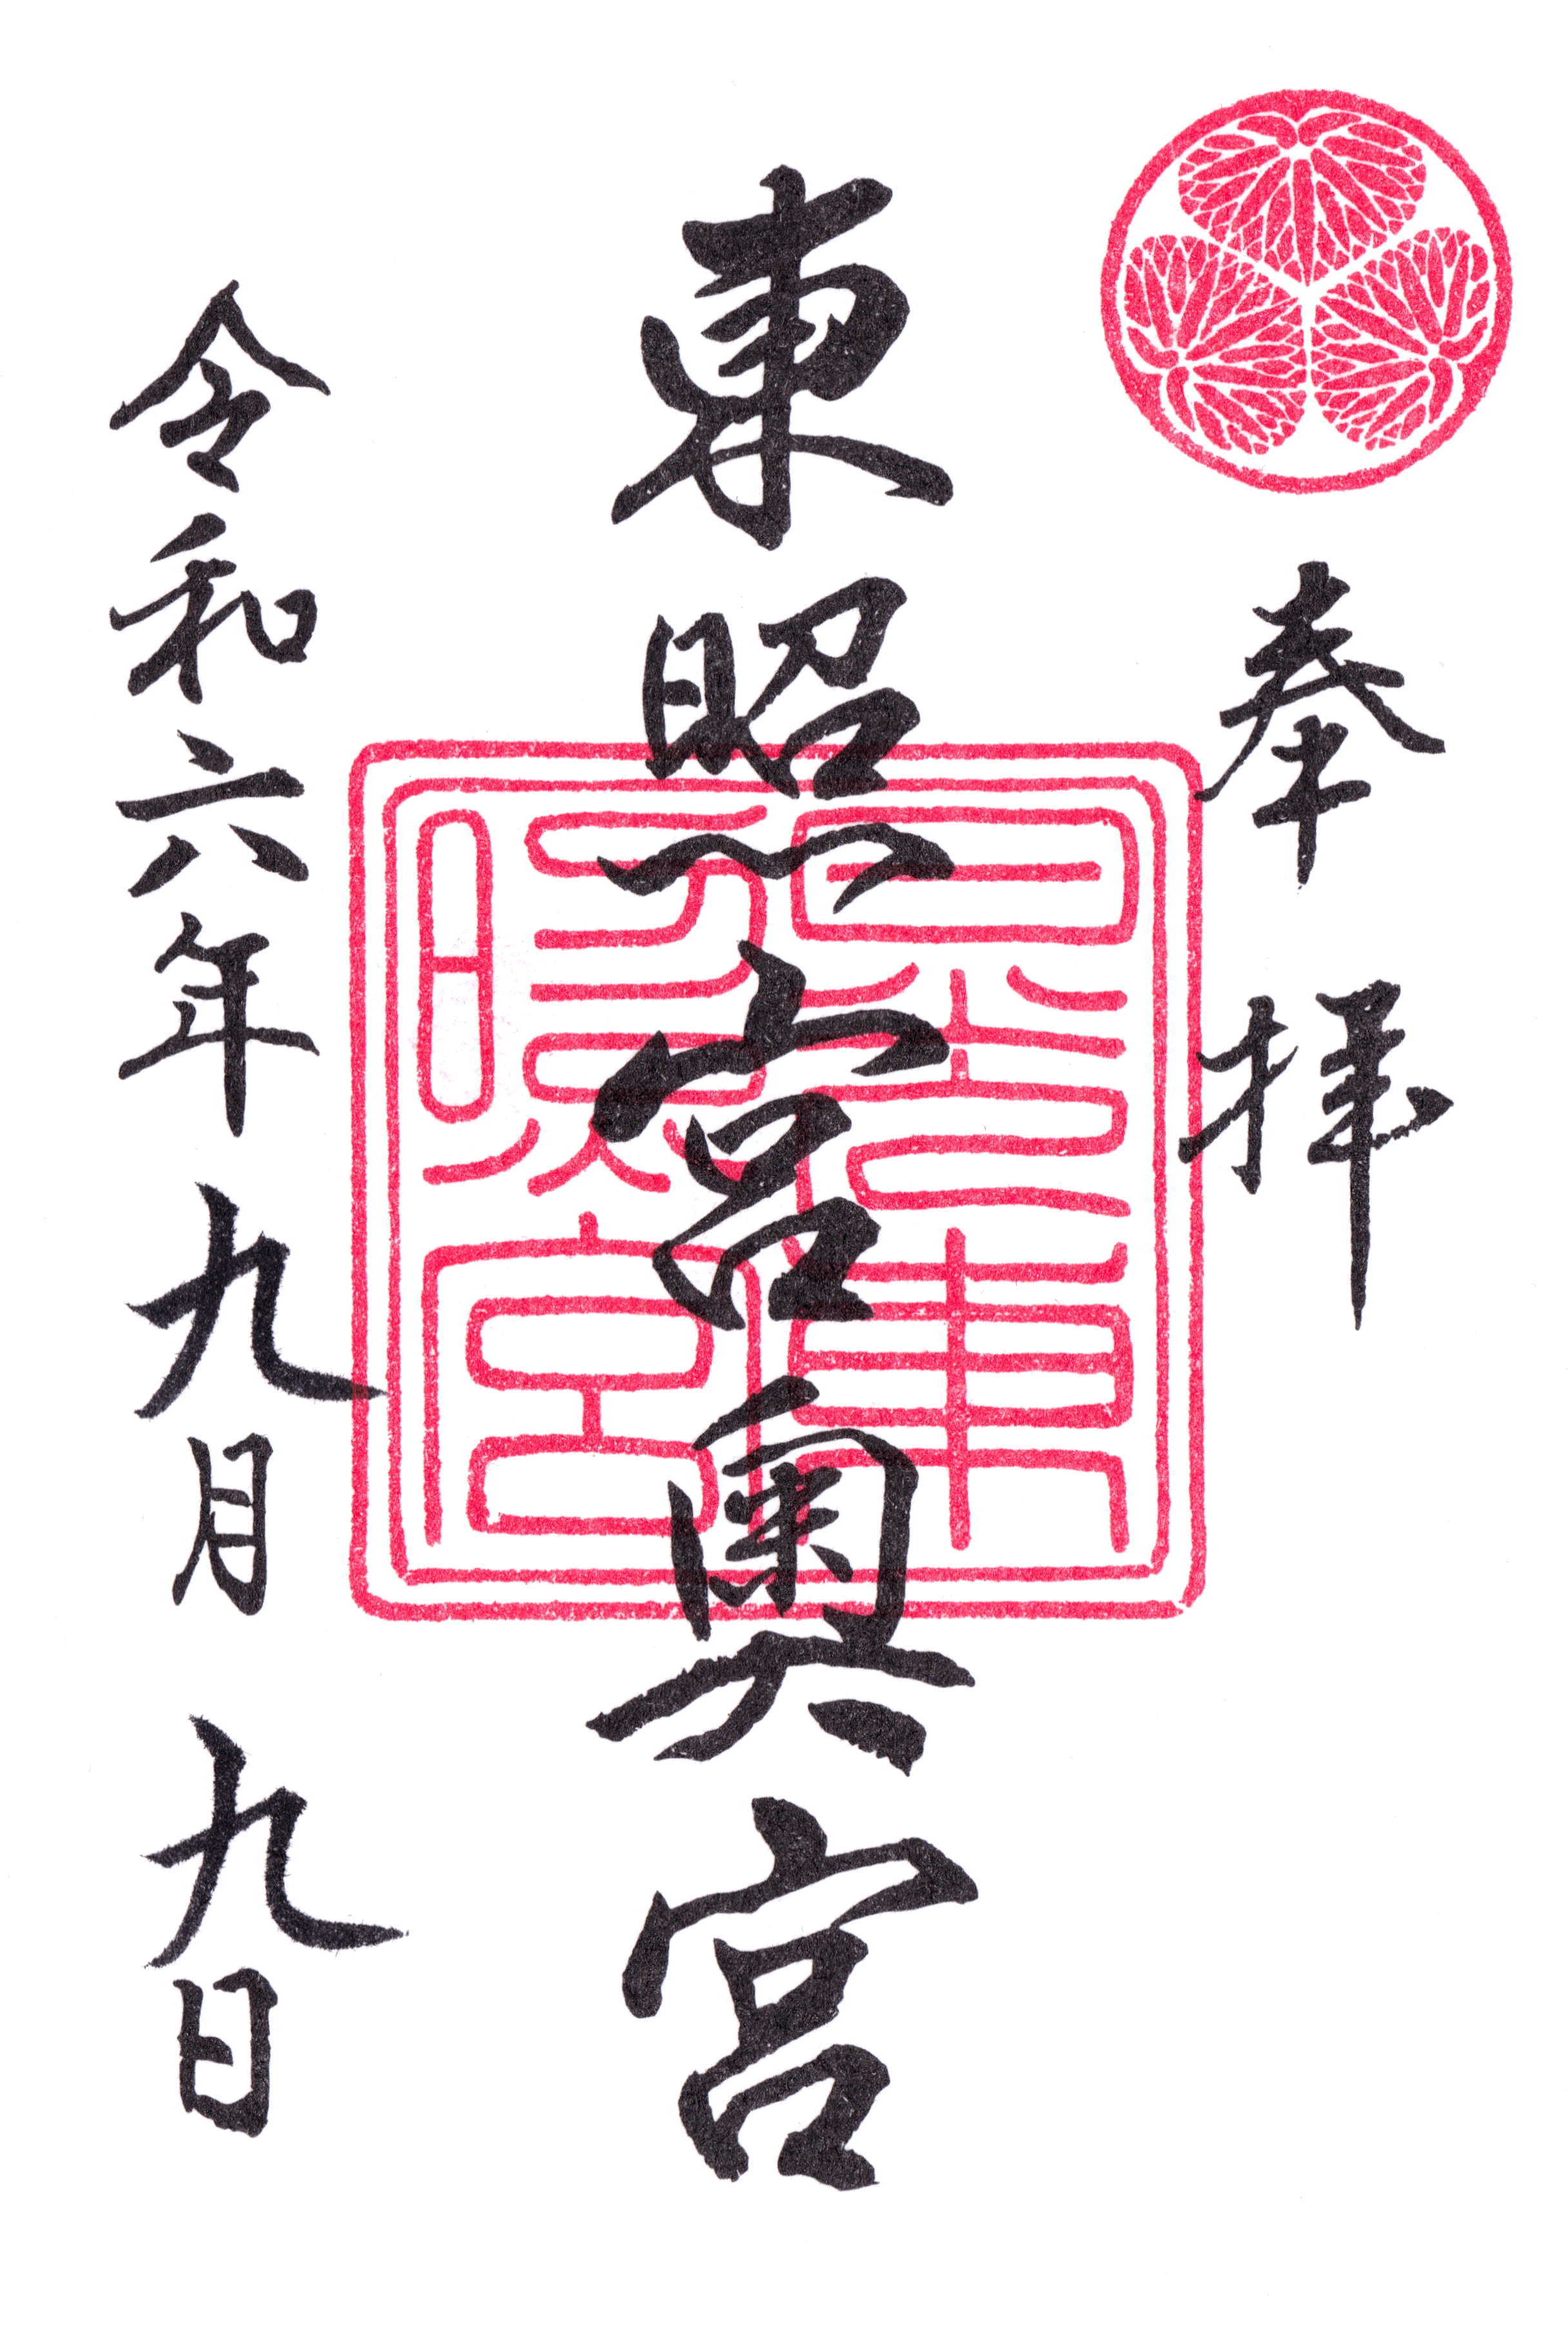 奉拝
東照宮奥宮
日光東
照宮
令和六年九月九日